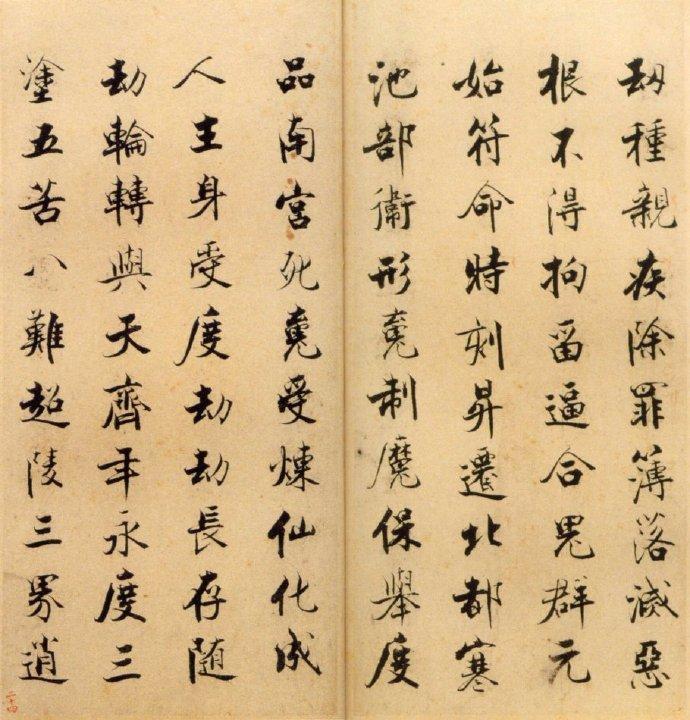 劫種親疾除罪簿落滅惡
根不得拘留逼合鬼群元
始符命時刻昇遷北都寒
池部衛形魂制魔保舉度
品南宮死魂受煉仙化成
人生身受度劫劫長存随
劫輪轉與天齊年永度三
塗五苦八難超陵三界逍